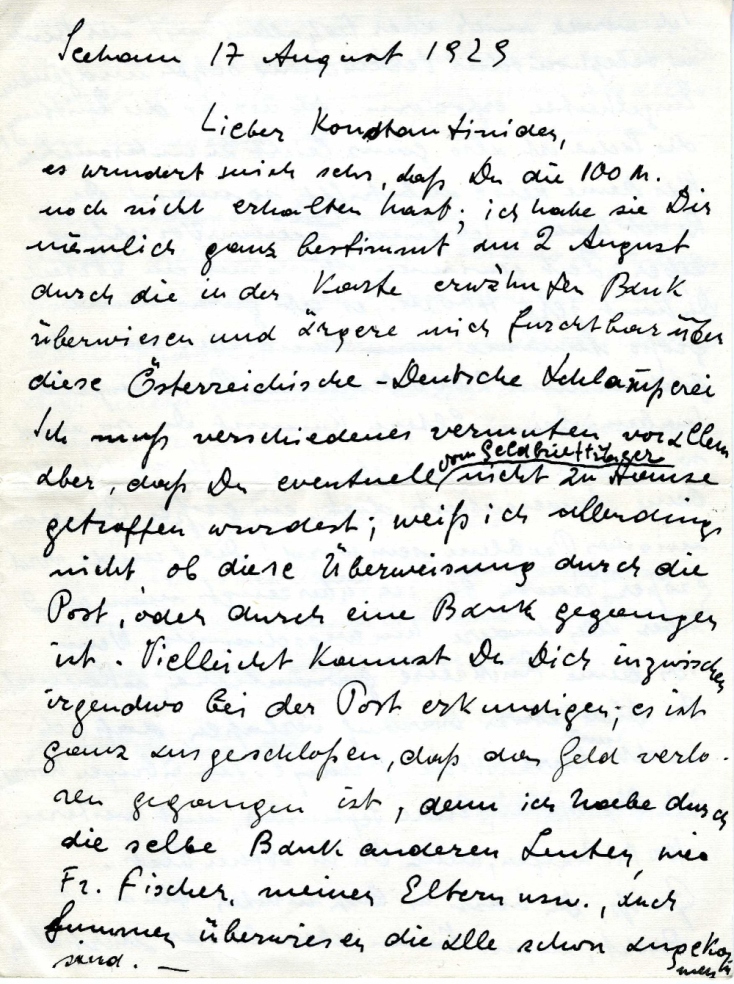 Seeham 17 August 1929
Lieber Konstantinides,
es wundert mich sehr, daß Du die 100 M.
noch nicht erhalten hast; ich habe sie Dir
nämlich ganz bestimmt am 2 August
durch die in der Karte erwähnten Bank
überwiesen und ärgere mich furchtbar über
diese Österreichische-Deutsche Schlamperei
Ich muß verschiedenes vermuten vor allem
aber, daß Du eventuell vom Geldbriefträger nicht zu Hause
getroffen wurdest; weiß ich allerdings
nicht ob diese Überweisung durch die
Post, oder durch eine Bank gegangen
ist. Vielleicht kannst Du Dich inzwischen
irgendwo bei der Post erkundigen; es ist
ganz ausgeschloßen, daß das Geld verlo-
ren gegangen ist, denn ich habe durch
die selbe Bank anderen Leuten, wie
Fr. Fischer, meinen Eltern usw., auch
Summen überwiesen die alle schon angekom
men sind. —